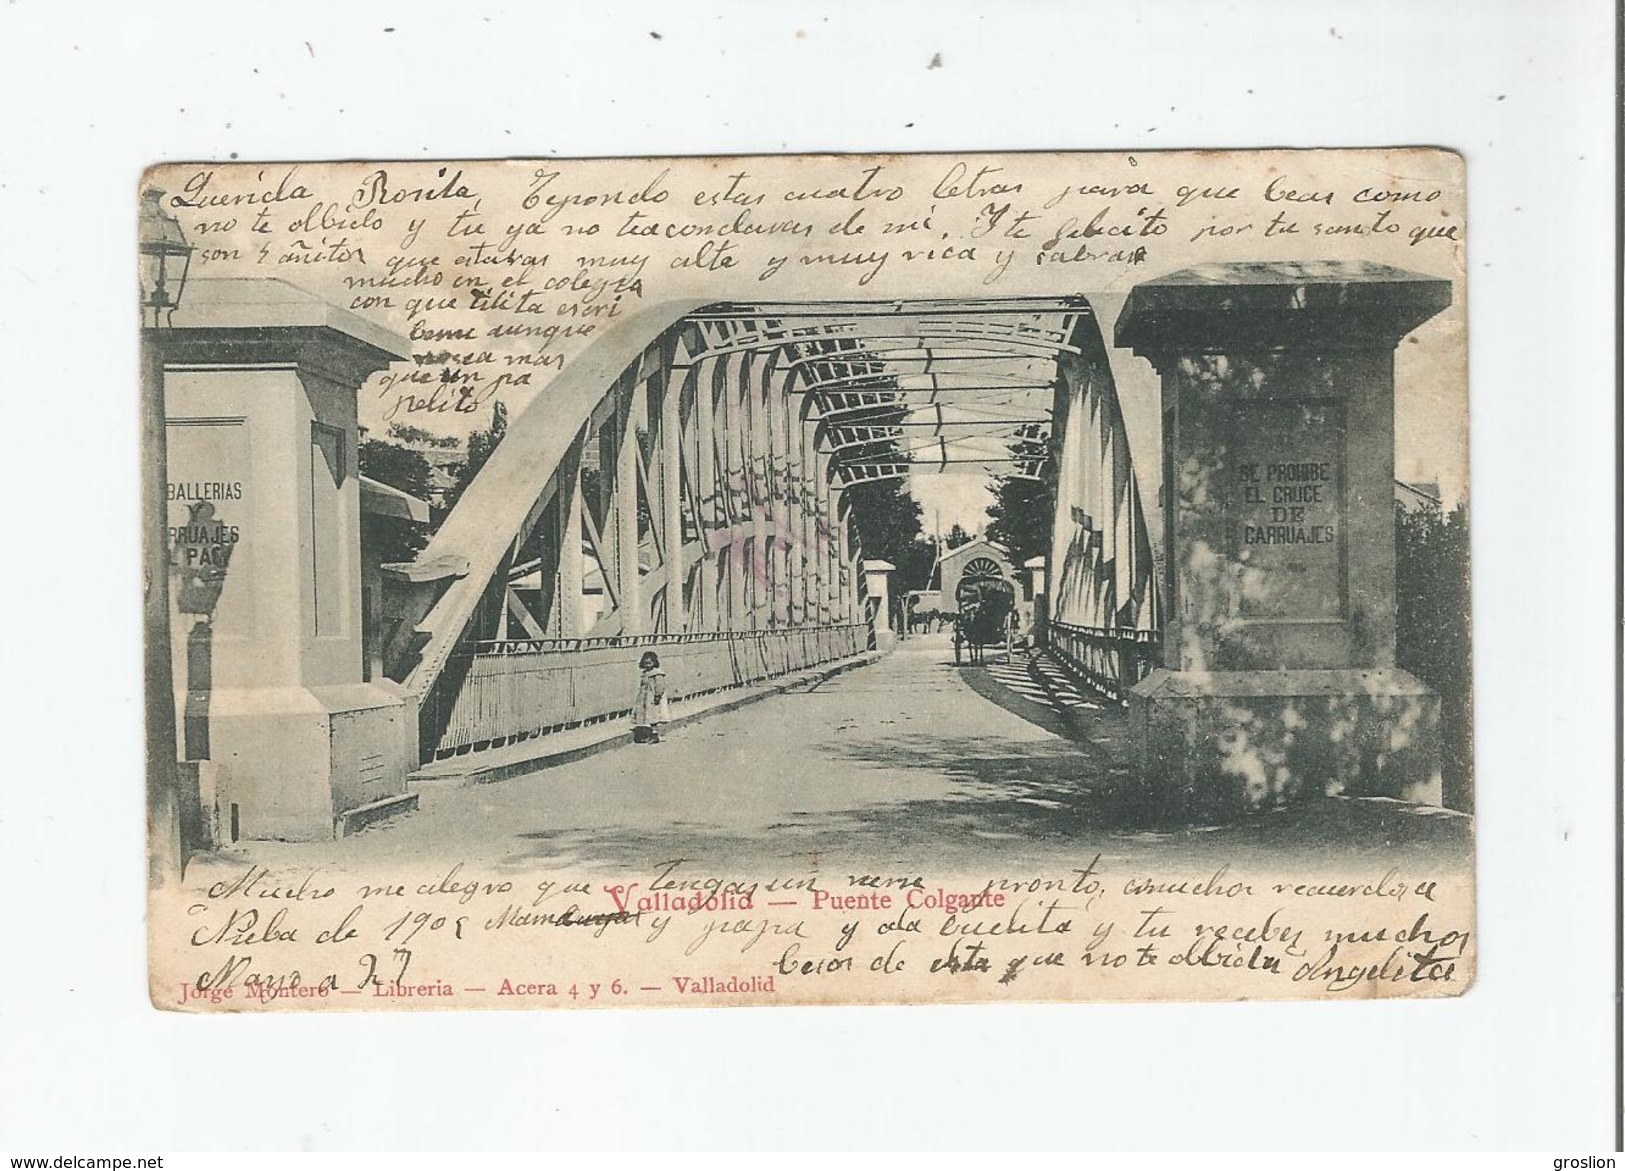 Querida Rosita, Tepondo estas cuatro letras para que beas como
no te olbido y tu ya no teacondaras de mi. Y te felicito por tu santo que
son 5 añitos que estaras muy alta y muy rica y sabras
mucho en el colegio
con que tilita escri
beme aunque
no sea mas
que un pa
pelito
BALLERIAS
Y
RRUAJES
L PAS
SE PROHIBE
EL CRUCE
DE
CARRUAJES
Mucho me alegro que tengas un nene pronto, muchos recuerdos a
Valladolid — Puente Colgante
de 1905 y papa y ala buelita y tu recibes muchos
Mayo a 27 besos de esta que no te olbida Angelita
Jorge Montero — Libreria — Acera 4 y 6. — Valladolid
www.delcampe.net
groslion